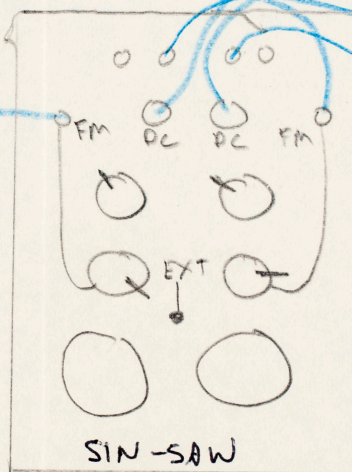 FM DC DC FM
EXT
SIN-SAW